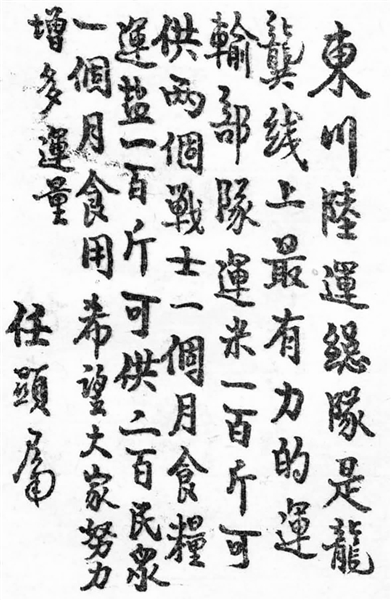 東川陸運總隊是龍
龔线上最有力的運
輸部隊運米一百斤可
供两個戦士一個月食糧
運盐一百斤可供二百民衆
一個月食用希望大家努力
增多運量
任顕羣